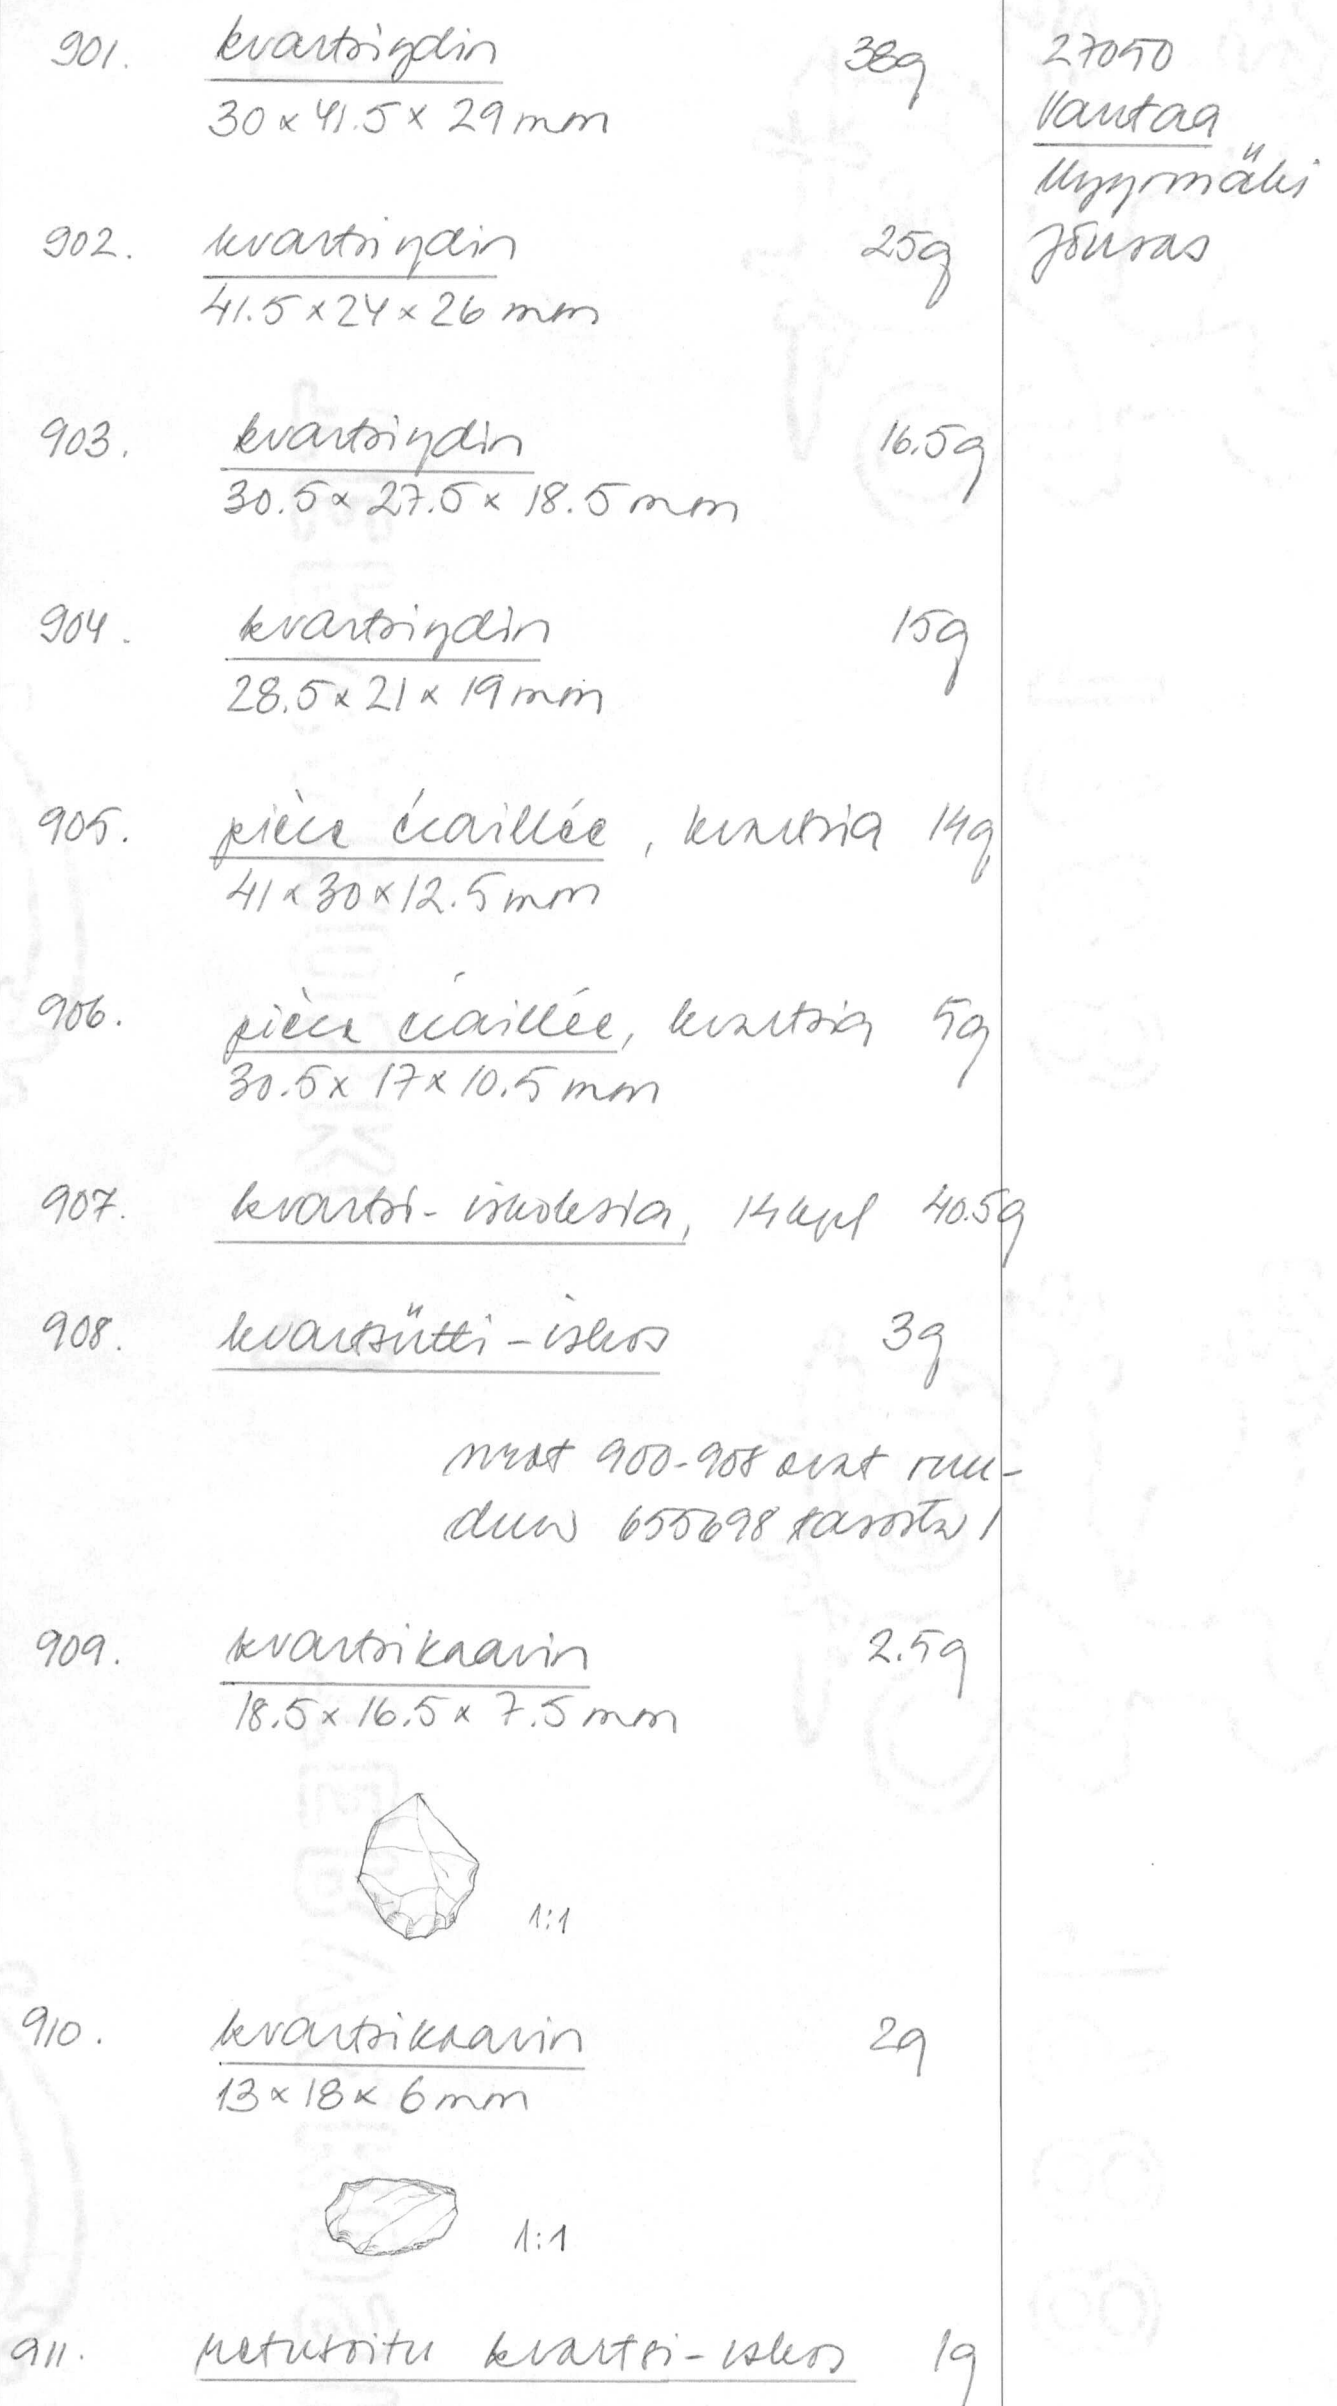 901. kvartsiydin 38g
30 x 41.5 x 29 mm
27050
Vantaa
Myyrmäki
Jönsas
902. kvartsiydin 25g
41.5 x 24 x 26 mm
903. kvartsiydin 16.5g
30.5 x 27.5 x 18.5 mm
904. kvartsiydin 15g
28.5 x 21 x 19 mm
905. pièce écaillée, kvartsia 14g
41 x 30 x 12.5 mm
906. pièce écaillée, kvartsia 5g
30.5 x 17 x 10.5 mm
907. kvartsi-iskoksia, 14 kpl 40.5g
908. kvartsiitti-iskos 3g
nrot 900-908 ovat ruu-
dun 655698 tasosta 1
909. kvartsikaavin 2.5g
18.5 x 16.5 x 7.5 mm
1:1
910. kvartsikaavin 2g
13 x 18 x 6 mm
1:1
911. retusoitu kvartsi-iskos 1g